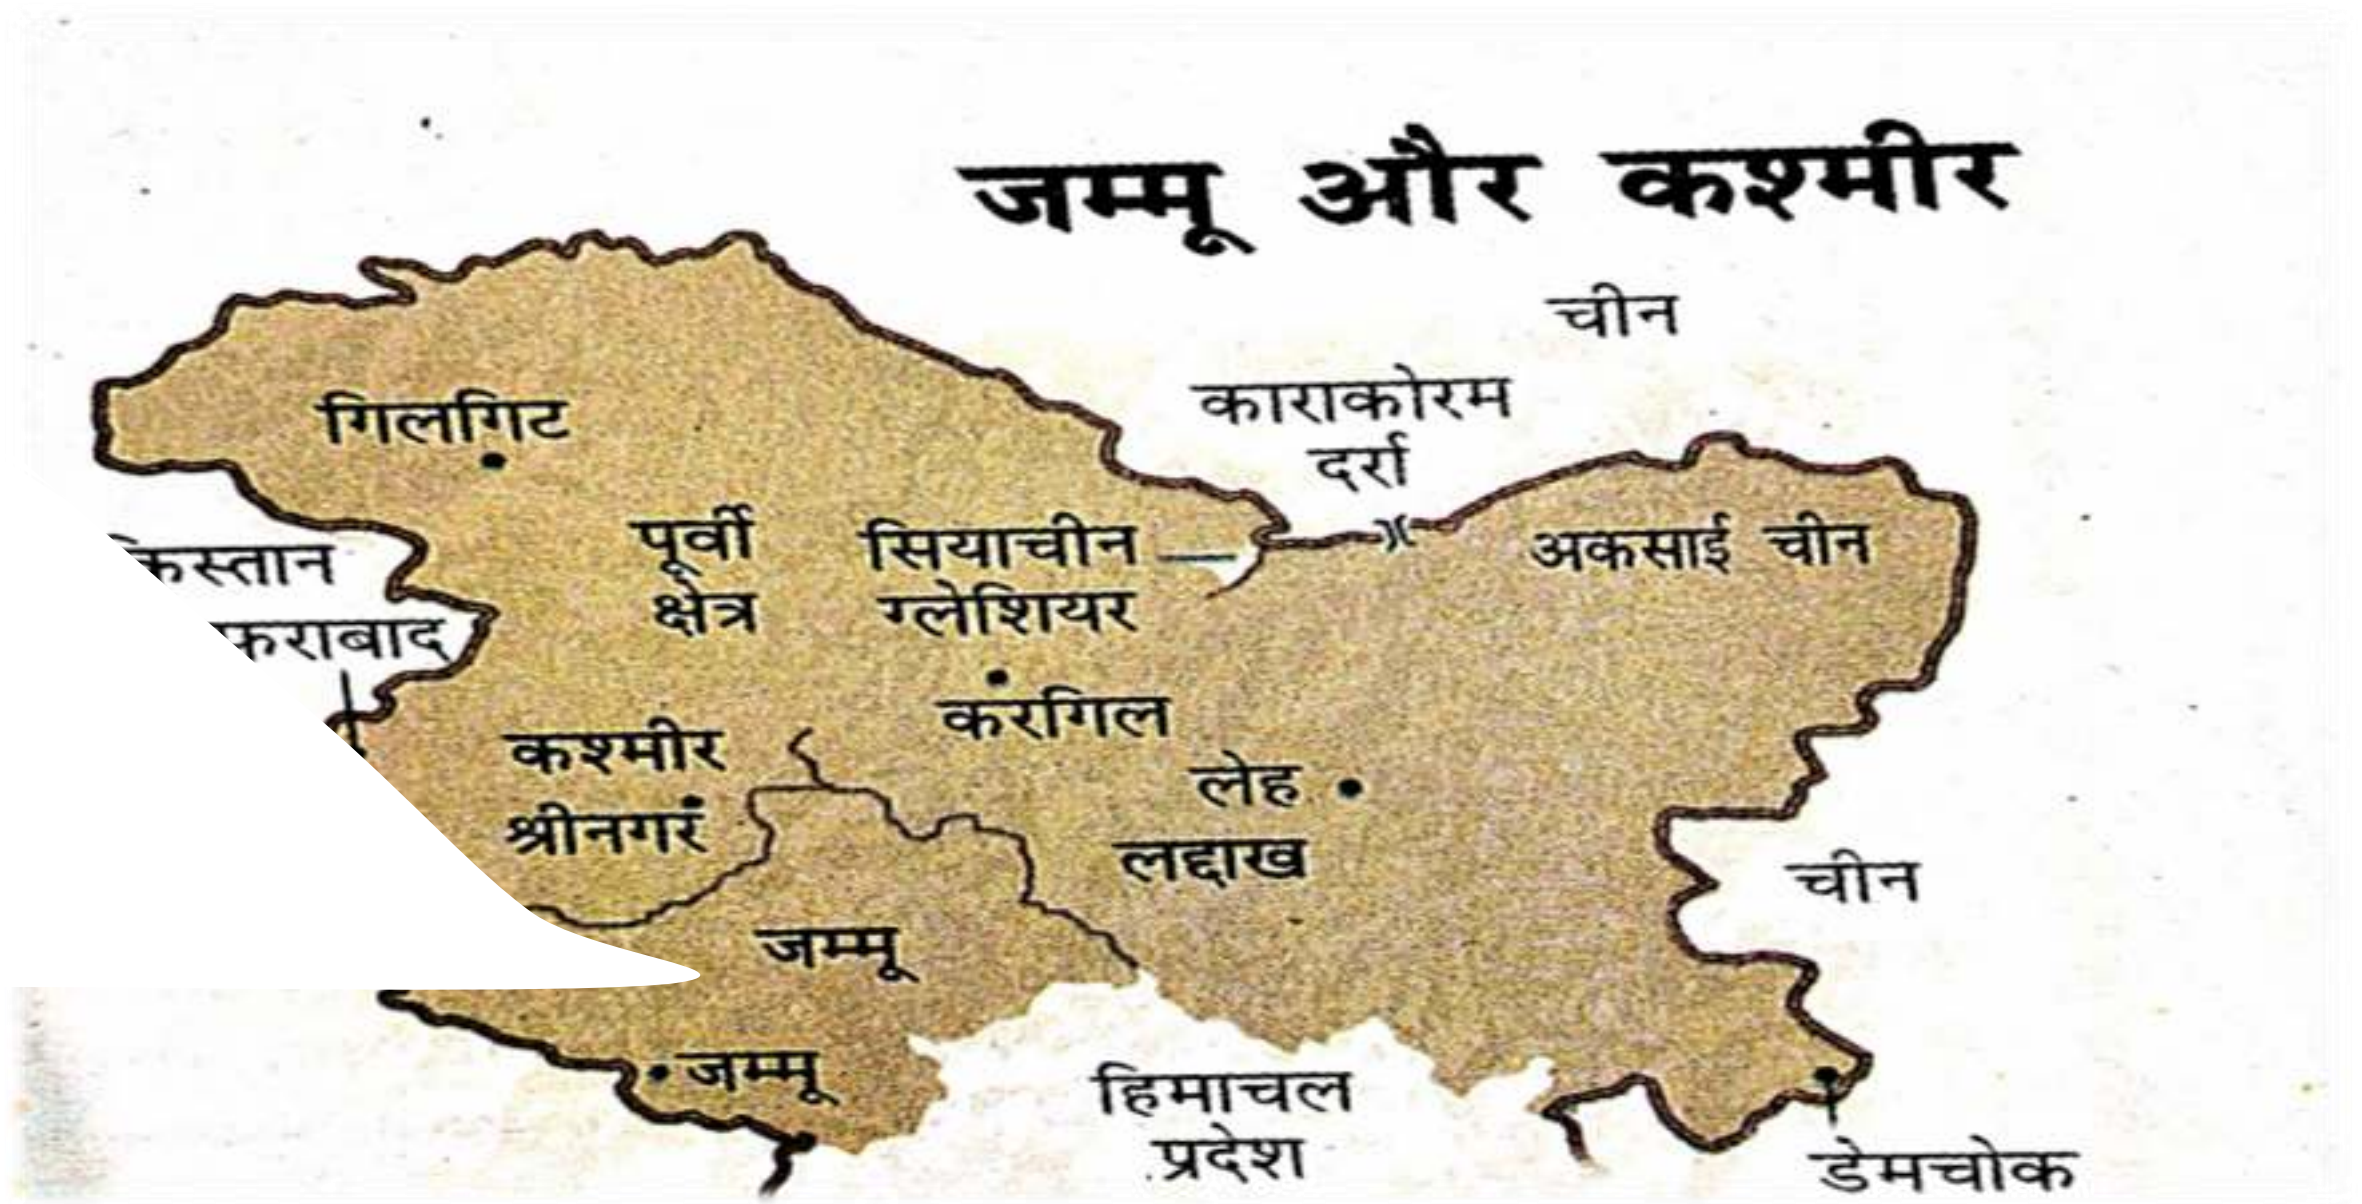 जम्मू और कश्मीर
चीन
काराकोरम
दर्रा
गिलगिट
पूर्वी
क्षेत्र
सियाचीन
ग्लेशियर
अकसाई चीन
करगिल
कश्मीर
श्रीनगर
लेह
लद्दाख
चीन
जम्मू
जम्मू
हिमाचल
प्रदेश
डेमचोक